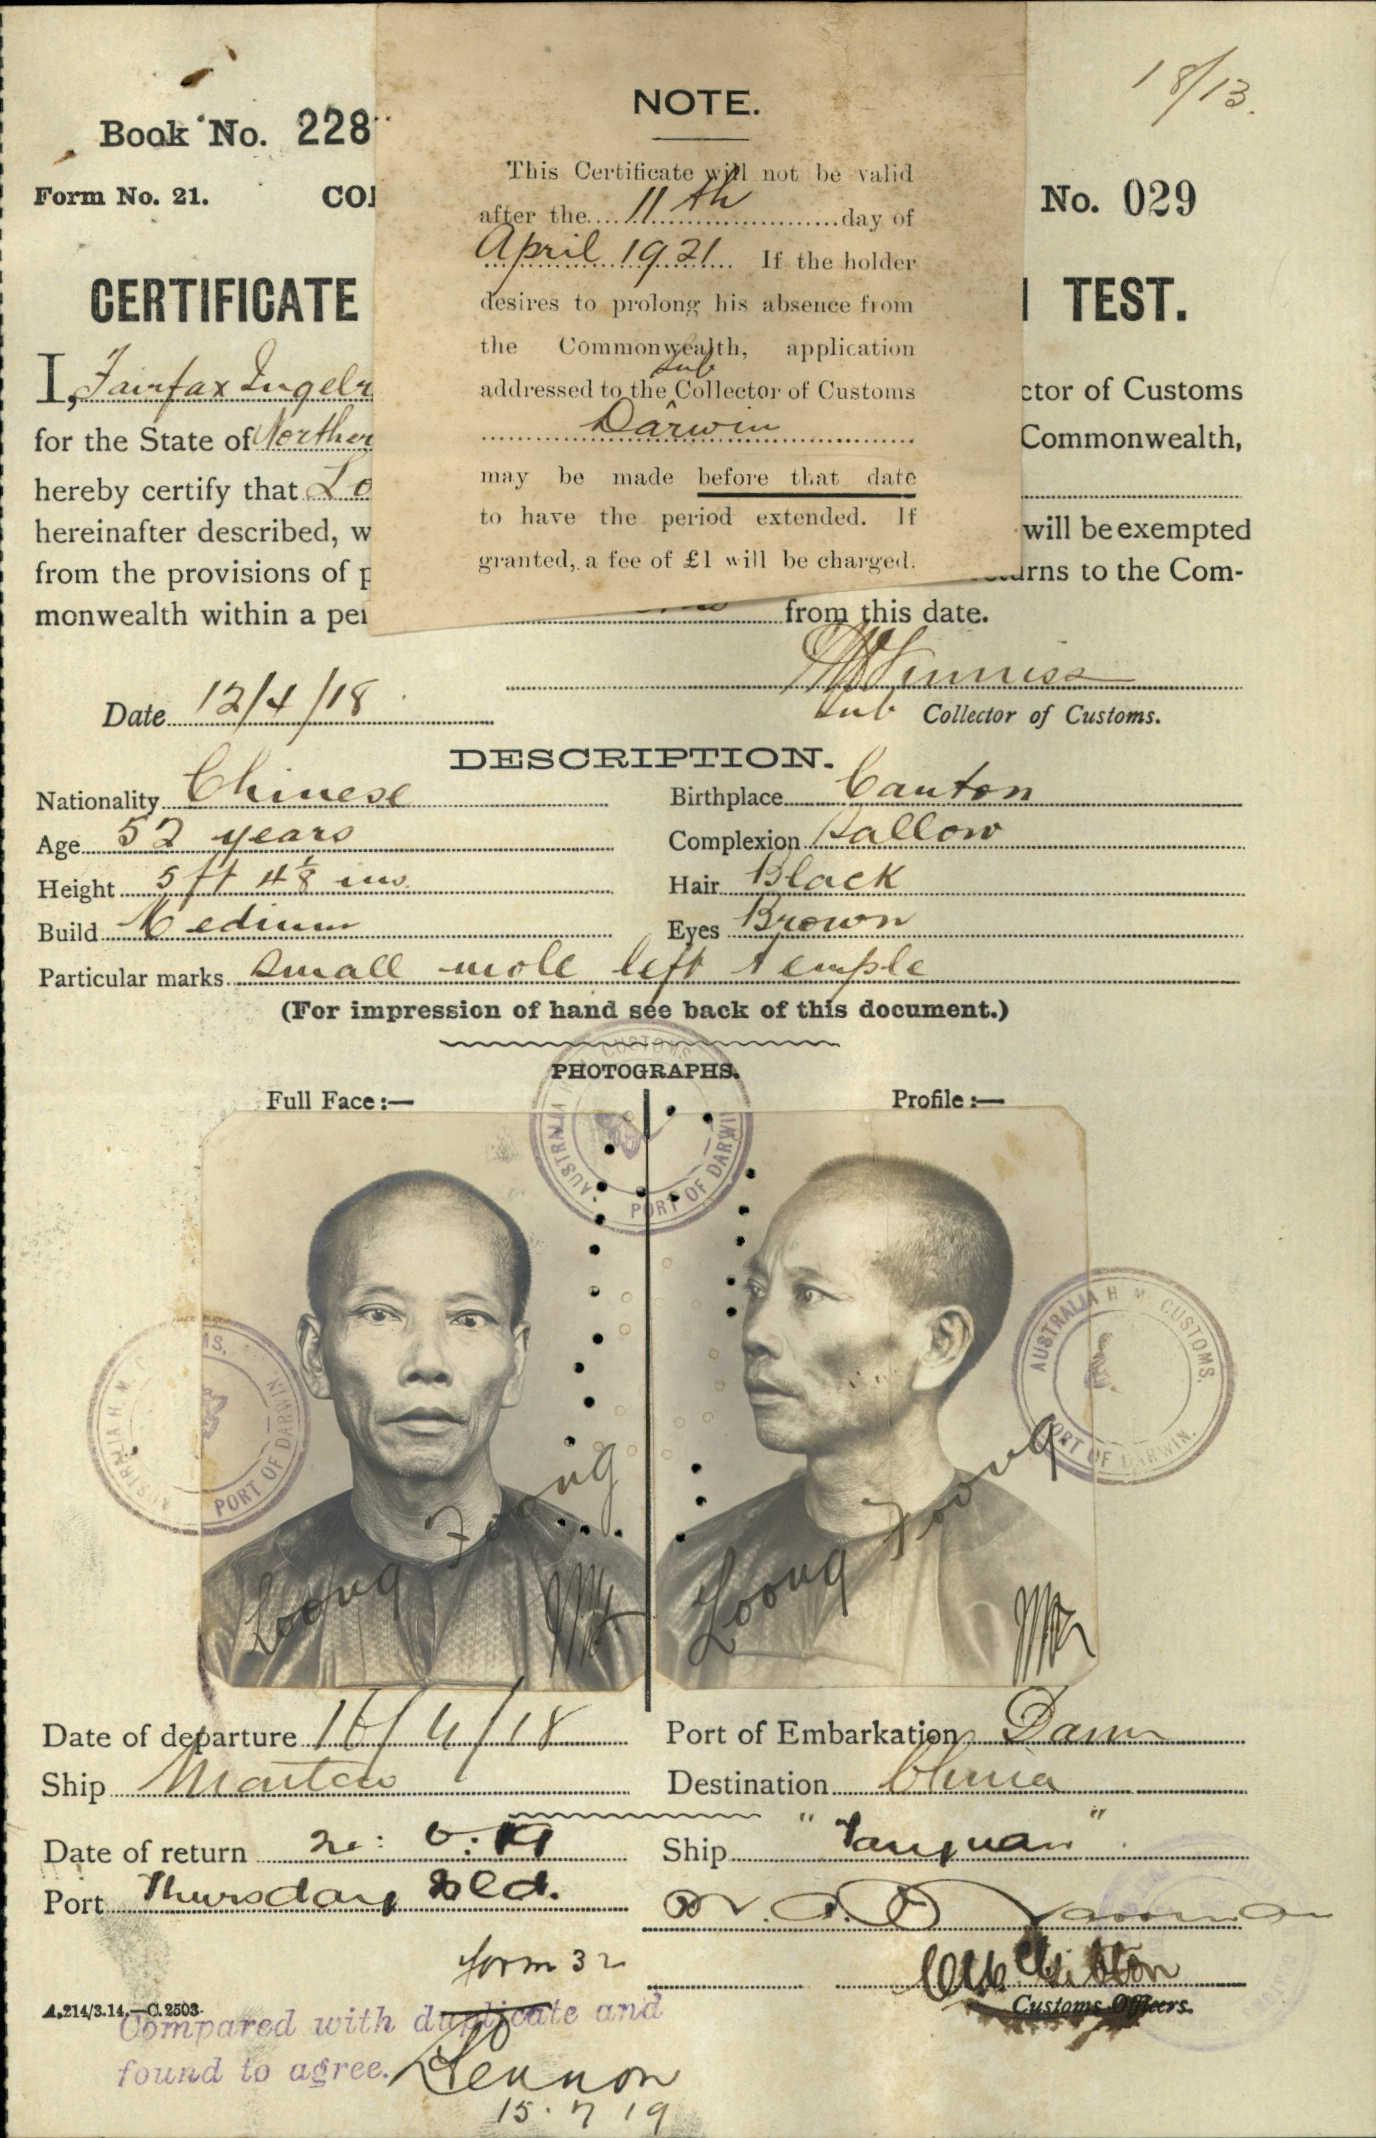 18/13.
Book No. 228
NOTE.
Form No. 21.
No. 029
This Certificate will not be valid
after the 11th day of
April 1921. If the holder
desires to prolong his absence from
the Commonwealth, application
sub
addressed to the Collector of Customs
Darwin
may be made before that date
to have the period extended. If
granted, a fee of £1 will be charged.
CERTIFICATE
TEST.
I, Fairfax
ctor of Customs
for the State of
Commonwealth,
hereby certify that Lo
hereinafter described, w
will be exempted
from the provisions of p
urns to the Com-
monwealth within a per
from this date.
Date 12/4/18
Sub Collector of Customs.
DESCRIPTION.
Nationality Chinese
Birthplace Canton
Age 52 years
Complexion Sallow
Height 5 ft 4 1/8 ins.
Hair Black
Build Medium
Eyes Brown
Particular marks small mole left temple
(For impression of hand see back of this document.)
PHOTOGRAPHS.
Full Face :—
Profile :—
AUSTRALIA H. M. CUSTOMS. PORT OF DARWIN
AUSTRALIA H. M. CUSTOMS. PORT OF DARWIN
AUSTRALIA H. M. CUSTOMS. PORT OF DARWIN.
Loong Foong
Loong Foong
Date of departure 16/4/18
Port of Embarkation
Ship Mataram
Destination China
Date of return
Ship "Taiyuan".
Port Thursday Isld.
form 32
Customs Officers.
A.214/3.14.—C.2503.
Compared with duplicate and
found to agree.
15.7.19